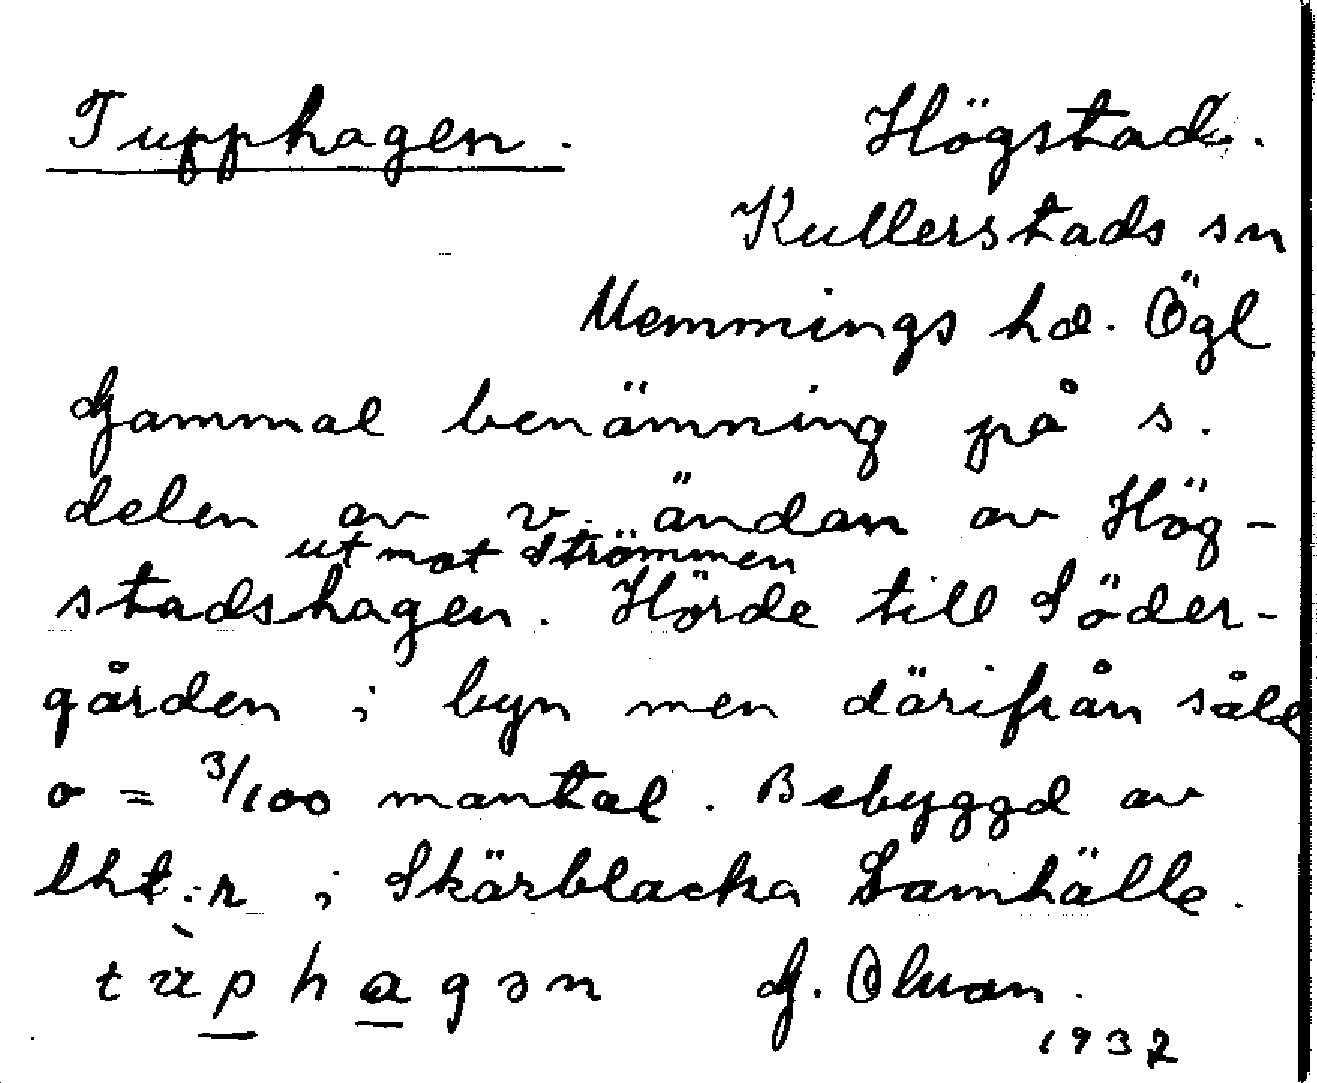 Tupphagen. Högstad.
Kullerstads sn
Memmings hd. Ögl
Gammal benämning på s.
delen av v. ändan av Hög-
ut mot Strömmen
stadshagen. Hörde till Söder-
gården i byn men därifrån såld
o = 3/100 mantal. Bebyggd av
lht:r i Skärblacka Samhälle.
tùphagən G. Olson.
1932